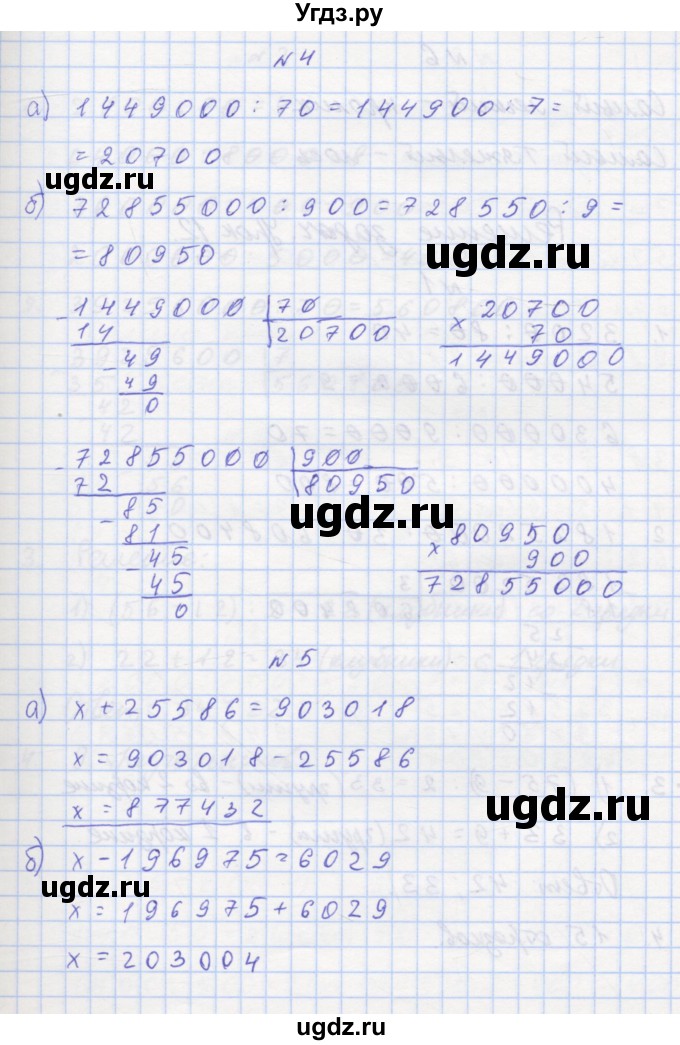 Угдз.ру
N 4
а) 1449000 : 70 = 144900 : 7 =
= 20700
ugdz.ru
б) 72855000 : 900 = 728550 : 9 =
= 80950
ugdz.ru
- 1449000 | 70
14
20700
- 49
49
0
× 20700
70
1449000
ugdz.ru
- 72855000 | 900
72
80950
- 85
81
- 45
45
0
ugdz.ru
× 80950
900
72855000
ugdz.ru
N 5
а) x + 25586 = 903018
x = 903018 - 25586
x = 877432
ugdz.ru
б) x - 196975 = 6029
ugdz.ru
x = 196975 + 6029
x = 203004
ugdz.ru